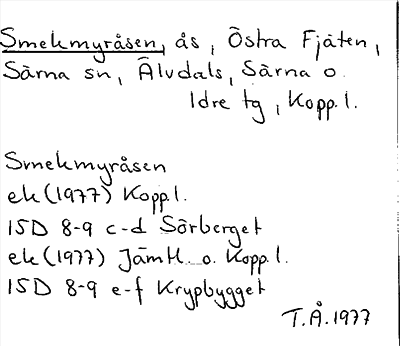 Smekmyråsen, ås, Östra Fjäten,
Särna sn, Älvdals, Särna o.
Idre tg, Kopp.l.
Smekmyråsen
ek (1977) Kopp.l.
15D 8-9 c-d Sörberget
ek (1977) Jämtl. o. Kopp.l.
15D 8-9 e-f Krypbygget
T.Å. 1977